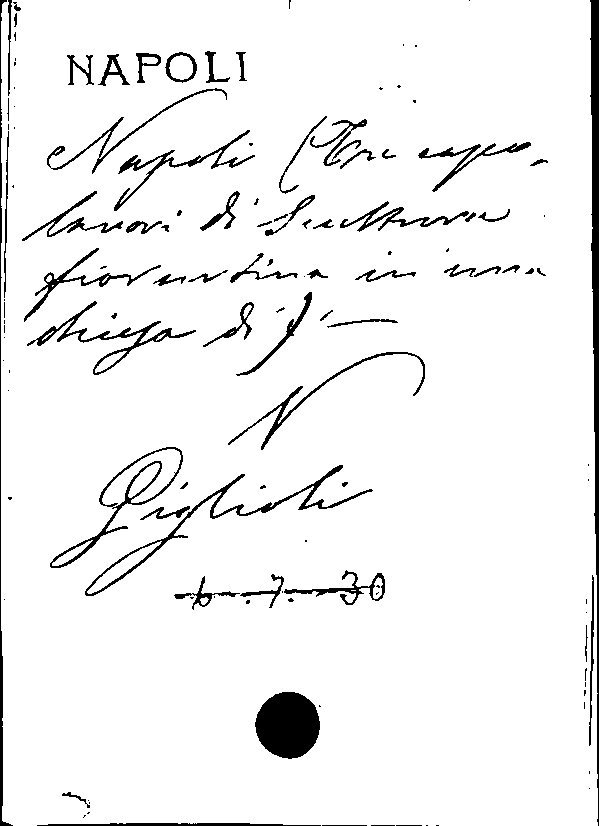 NAPOLI
Napoli (Tre capo-
lavori di scultura
fiorentina in una
chiesa di)' —
N
Giglioli
6.7.30